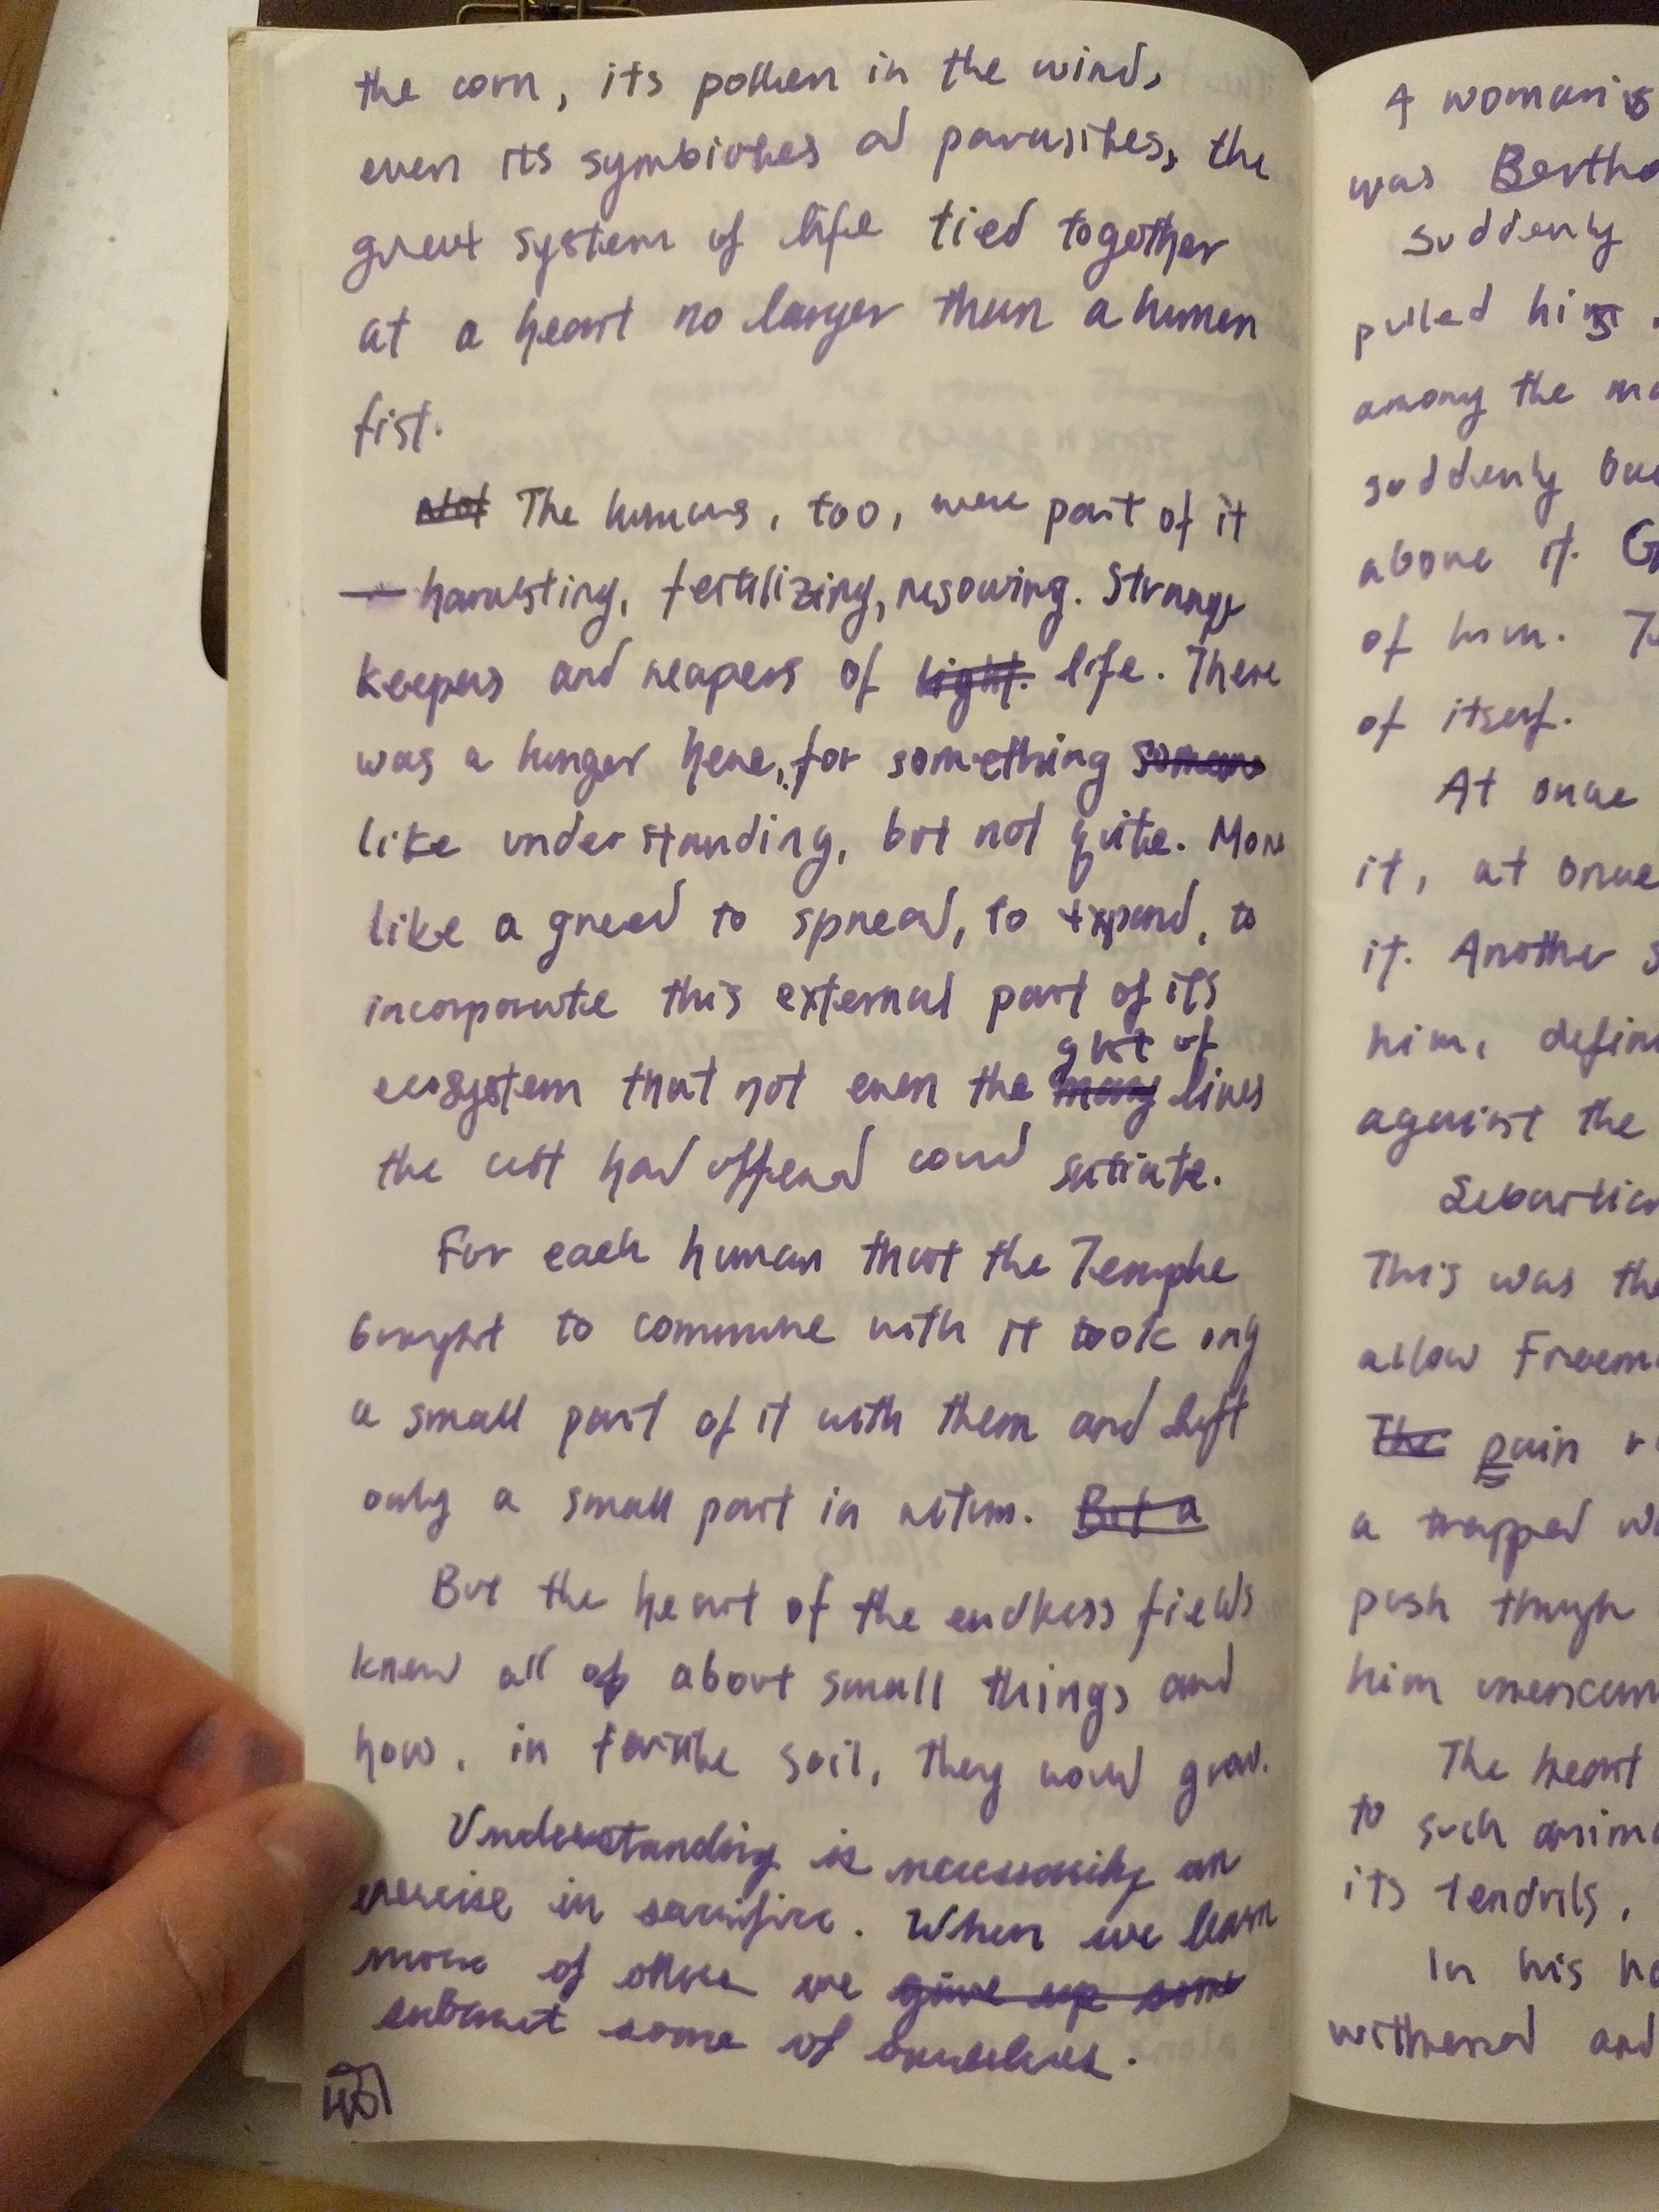 the corn, its pollen in the wind,
even its symbiotes and parasites, the
great system of life tied together
at a heart no larger than a human
fist.
Not The humans, too, were part of it
— harvesting, fertilizing, resowing. Strange
keepers and reapers of light. life. There
was a hunger here, for something
like understanding, but not quite. More
like a greed to spread, to expand, to
incorporate this external part of its
glut of
ecosystem that not even the many lives
the cult had offered could satiate.
For each human that the Temple
brought to commune with it took only
a small part of it with them and left
only a small part in return. But a
But the heart of the endless fields
knew all of about small things and
how, in fertile soil, they would grow.
Understanding is necessarily an
exercise in sacrifice. When we learn
more of others we give up some
subtract some of ourselves.
A woman's
was
suddenly
pulled his
among the
suddenly
above it.
of him.
of itself.
At once
it, at once
it. Another
him,
against the
This was the
allow
The pain
a trapped
push through
him
The heart
to such
its tendrils,
In his
withered and